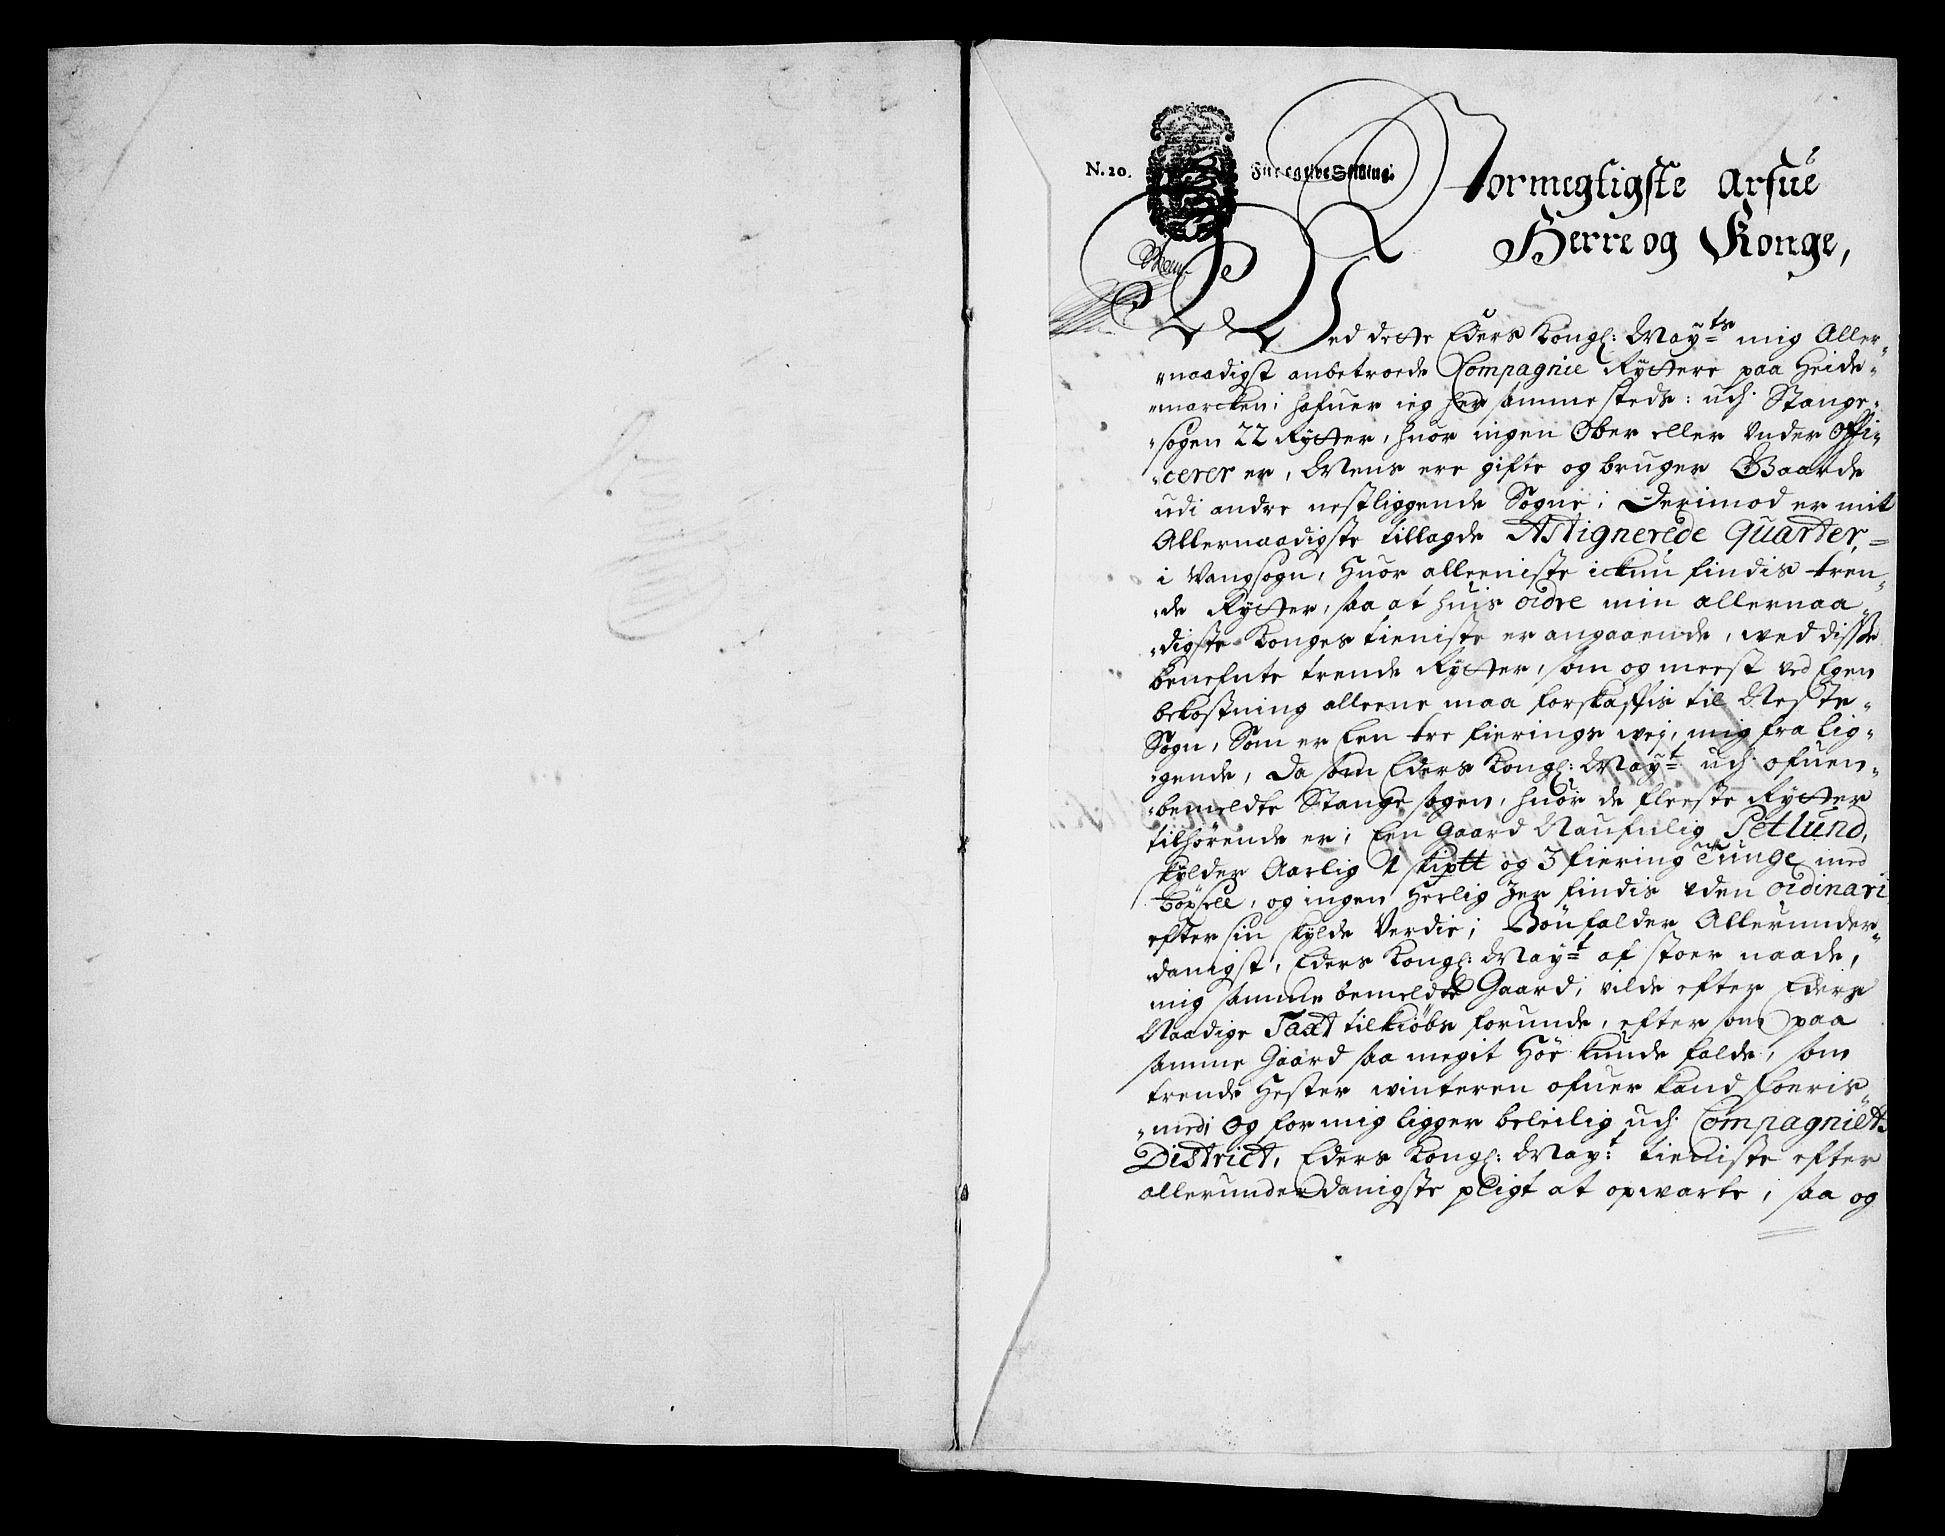 N. 20.
Fire og tive Skilling.
Stormegtigste Arfue
Herre og Konge,
Ved dette Eders Kongl: Mayts mig Aller-
naadigst anbetroede Compagnie Ryttere paa Heide-
marcken, hafuer ieg her sammesteds: udj Stange-
sogen 22 Rytter, huor ingen Ober eller Under Offi-
cerer er, Mens ere gifte og bruger Gaarde
udi andre nestliggende Sogne; Derimod er mit
Allernaadigste tillagde Assignerede Quarter,
i Vangsogn, Huor alleeniste ickun findis tren-
de Rytter, saa at huis oidre min allernaa-
digste Konges tieniste er angaaende, wed disse
benefnte trende Rytter, som og meest ved Egen
bekostning alleene maa forskaffis til Neste-
Sogn, Som er Een tre fierings wej, mig fra lig-
gende, Da som Eders Kongl: Mayt udj ofuen-
bemeldte Stange sogen, huor de fleeste Rytter
tilhørende er; Een Gaard Naufnlig Petlund,
skylder Aarlig 1 skiptt og 3 fiering Tunge med
Bøxsell, og ingen Herlighed findis uden oidinari
efter sin skylds Verdie; Bønfalder Allerunder-
danigst, Eders Kongl: Mayt af stoer naade,
mig samme bemeldte Gaard, vilde efter Eders
Naadige Taxt tilkiøbs forunde, eftersom paa
samme Gaard saa megit Høe kunde falde, som
trende Hester winteren ofuer kand foeris
med; Og for mig ligger beleilig udj Compagniets
District, Eders Kongl: Mayt: tieniste efter
allerunderdanigste pligt at opwarte, saa og